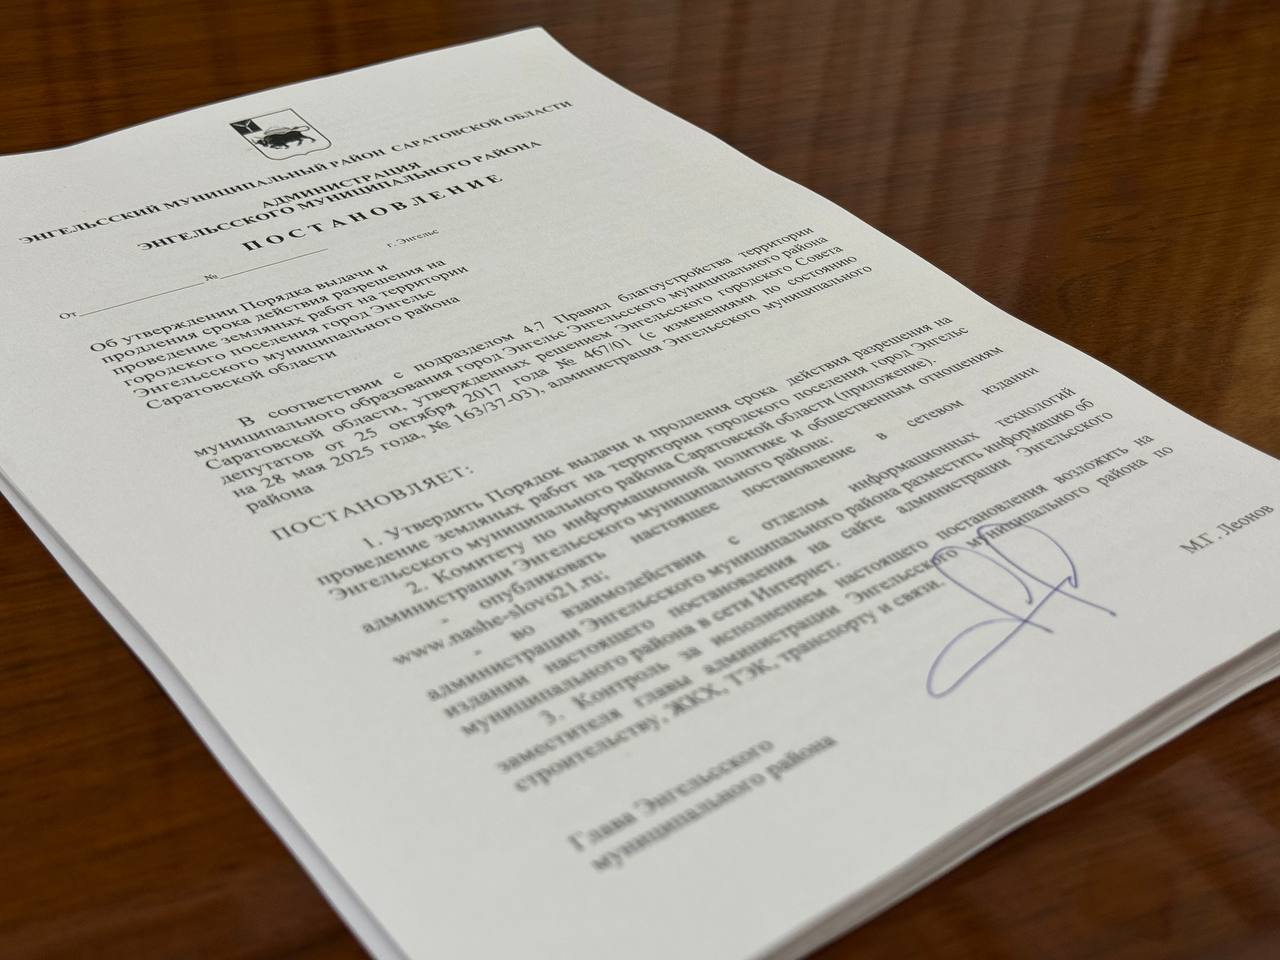 ЭНГЕЛЬССКИЙ МУНИЦИПАЛЬНЫЙ РАЙОН САРАТОВСКОЙ ОБЛАСТИ
АДМИНИСТРАЦИЯ
ЭНГЕЛЬССКОГО МУНИЦИПАЛЬНОГО РАЙОНА
ПОСТАНОВЛЕНИЕ
От № г. Энгельс
Об утверждении Порядка выдачи и
продления срока действия разрешения на
проведение земляных работ на территории
городского поселения город Энгельс
Энгельсского муниципального района
Саратовской области
В соответствии с подразделом 4.7 Правил благоустройства территории
муниципального образования город Энгельс Энгельсского муниципального района
Саратовской области, утвержденных решением Энгельсского городского Совета
депутатов от 25 октября 2017 года № 467/01 (с изменениями по состоянию
на 28 мая 2025 года, № 163/37-03), администрация Энгельсского муниципального
района
ПОСТАНОВЛЯЕТ:
1. Утвердить Порядок выдачи и продления срока действия разрешения на
проведение земляных работ на территории городского поселения город Энгельс
Энгельсского муниципального района Саратовской области (приложение).
2. Комитету по информационной политике и общественным отношениям
администрации Энгельсского муниципального района:
- опубликовать настоящее постановление в сетевом издании
www.nashe-slovo21.ru;
- во взаимодействии с отделом информационных технологий
администрации Энгельсского муниципального района разместить информацию об
издании настоящего постановления на сайте администрации Энгельсского
муниципального района в сети Интернет.
3. Контроль за исполнением настоящего постановления возложить на
заместителя главы администрации Энгельсского муниципального района по
строительству, ЖКХ, ТЭК, транспорту и связи.
Глава Энгельсского
муниципального района М.Г. Леонов